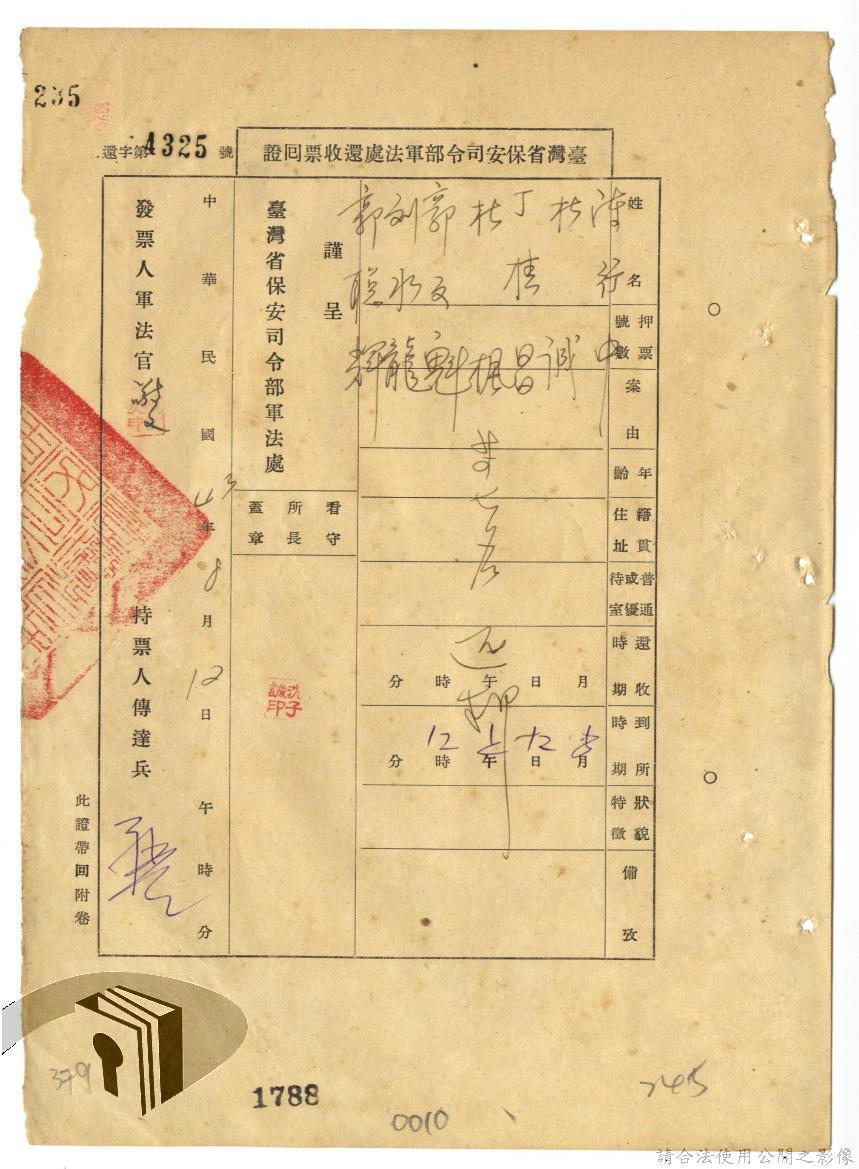 235
還字第4325號
臺灣省保安司令部軍法處還收票回證
姓名
陳行中
杜誠
丁桂昌
杜楓
郭文魁
劉水龍
郭聰輝
等七名
還押
押票號數
案由
年齡
籍貫住址
普通或優待室
還收時期
月 日 午 時 分
到所時期
12
月 日 午 時 分
狀貌特徵
備攷
謹呈
臺灣省保安司令部軍法處
看守所長蓋章
沈子誠印
中華民國43年8月12日 午 時 分
發票人軍法官
持票人傳達兵
此證帶回附卷
379
1788
0010
245
請合法使用公開之影像